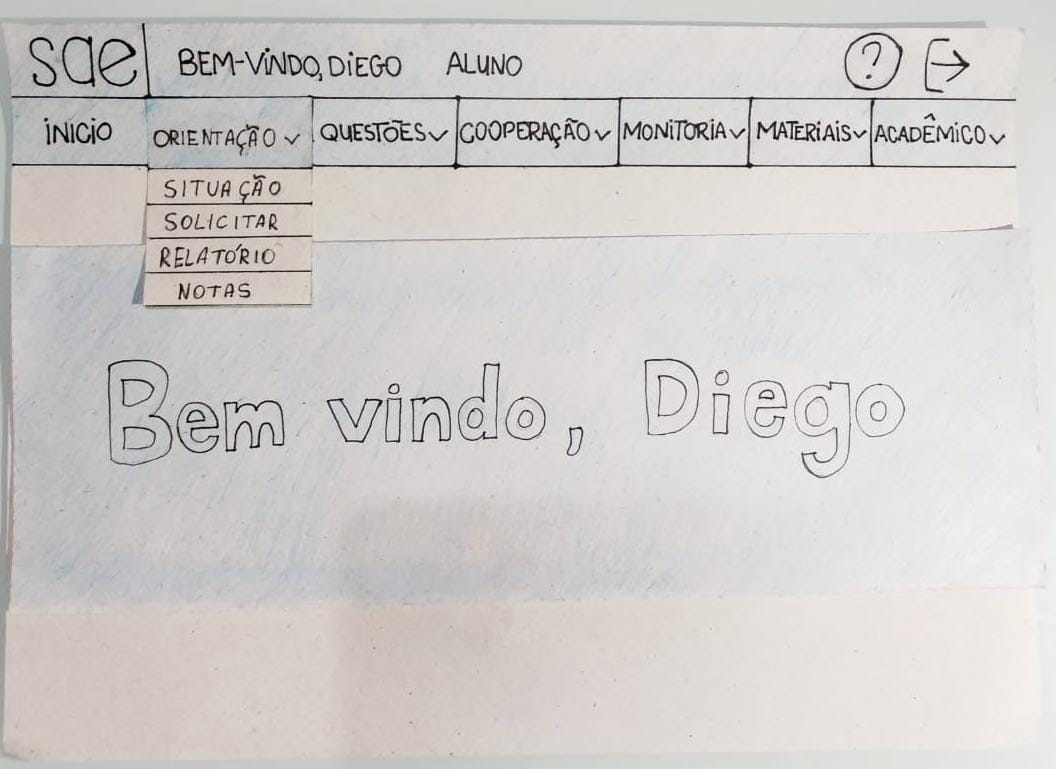 sae BEM-VINDO, DIEGO ALUNO ?
INICIO ORIENTAÇÃO QUESTÕES COOPERAÇÃO MONITORIA MATERIAIS ACADÊMICO
SITUAÇÃO
SOLICITAR
RELATÓRIO
NOTAS
Bem vindo, Diego